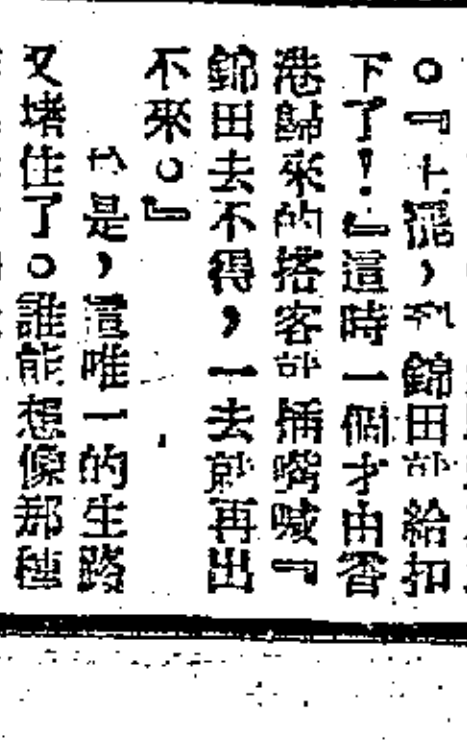 。『上，到錦田給扣
下了！』這時一個才由香
港歸來的搭客插嘴喊『
錦田去不得，一去就再出
不來。』
是，這唯一的生路
又堵住了。誰能想像那種